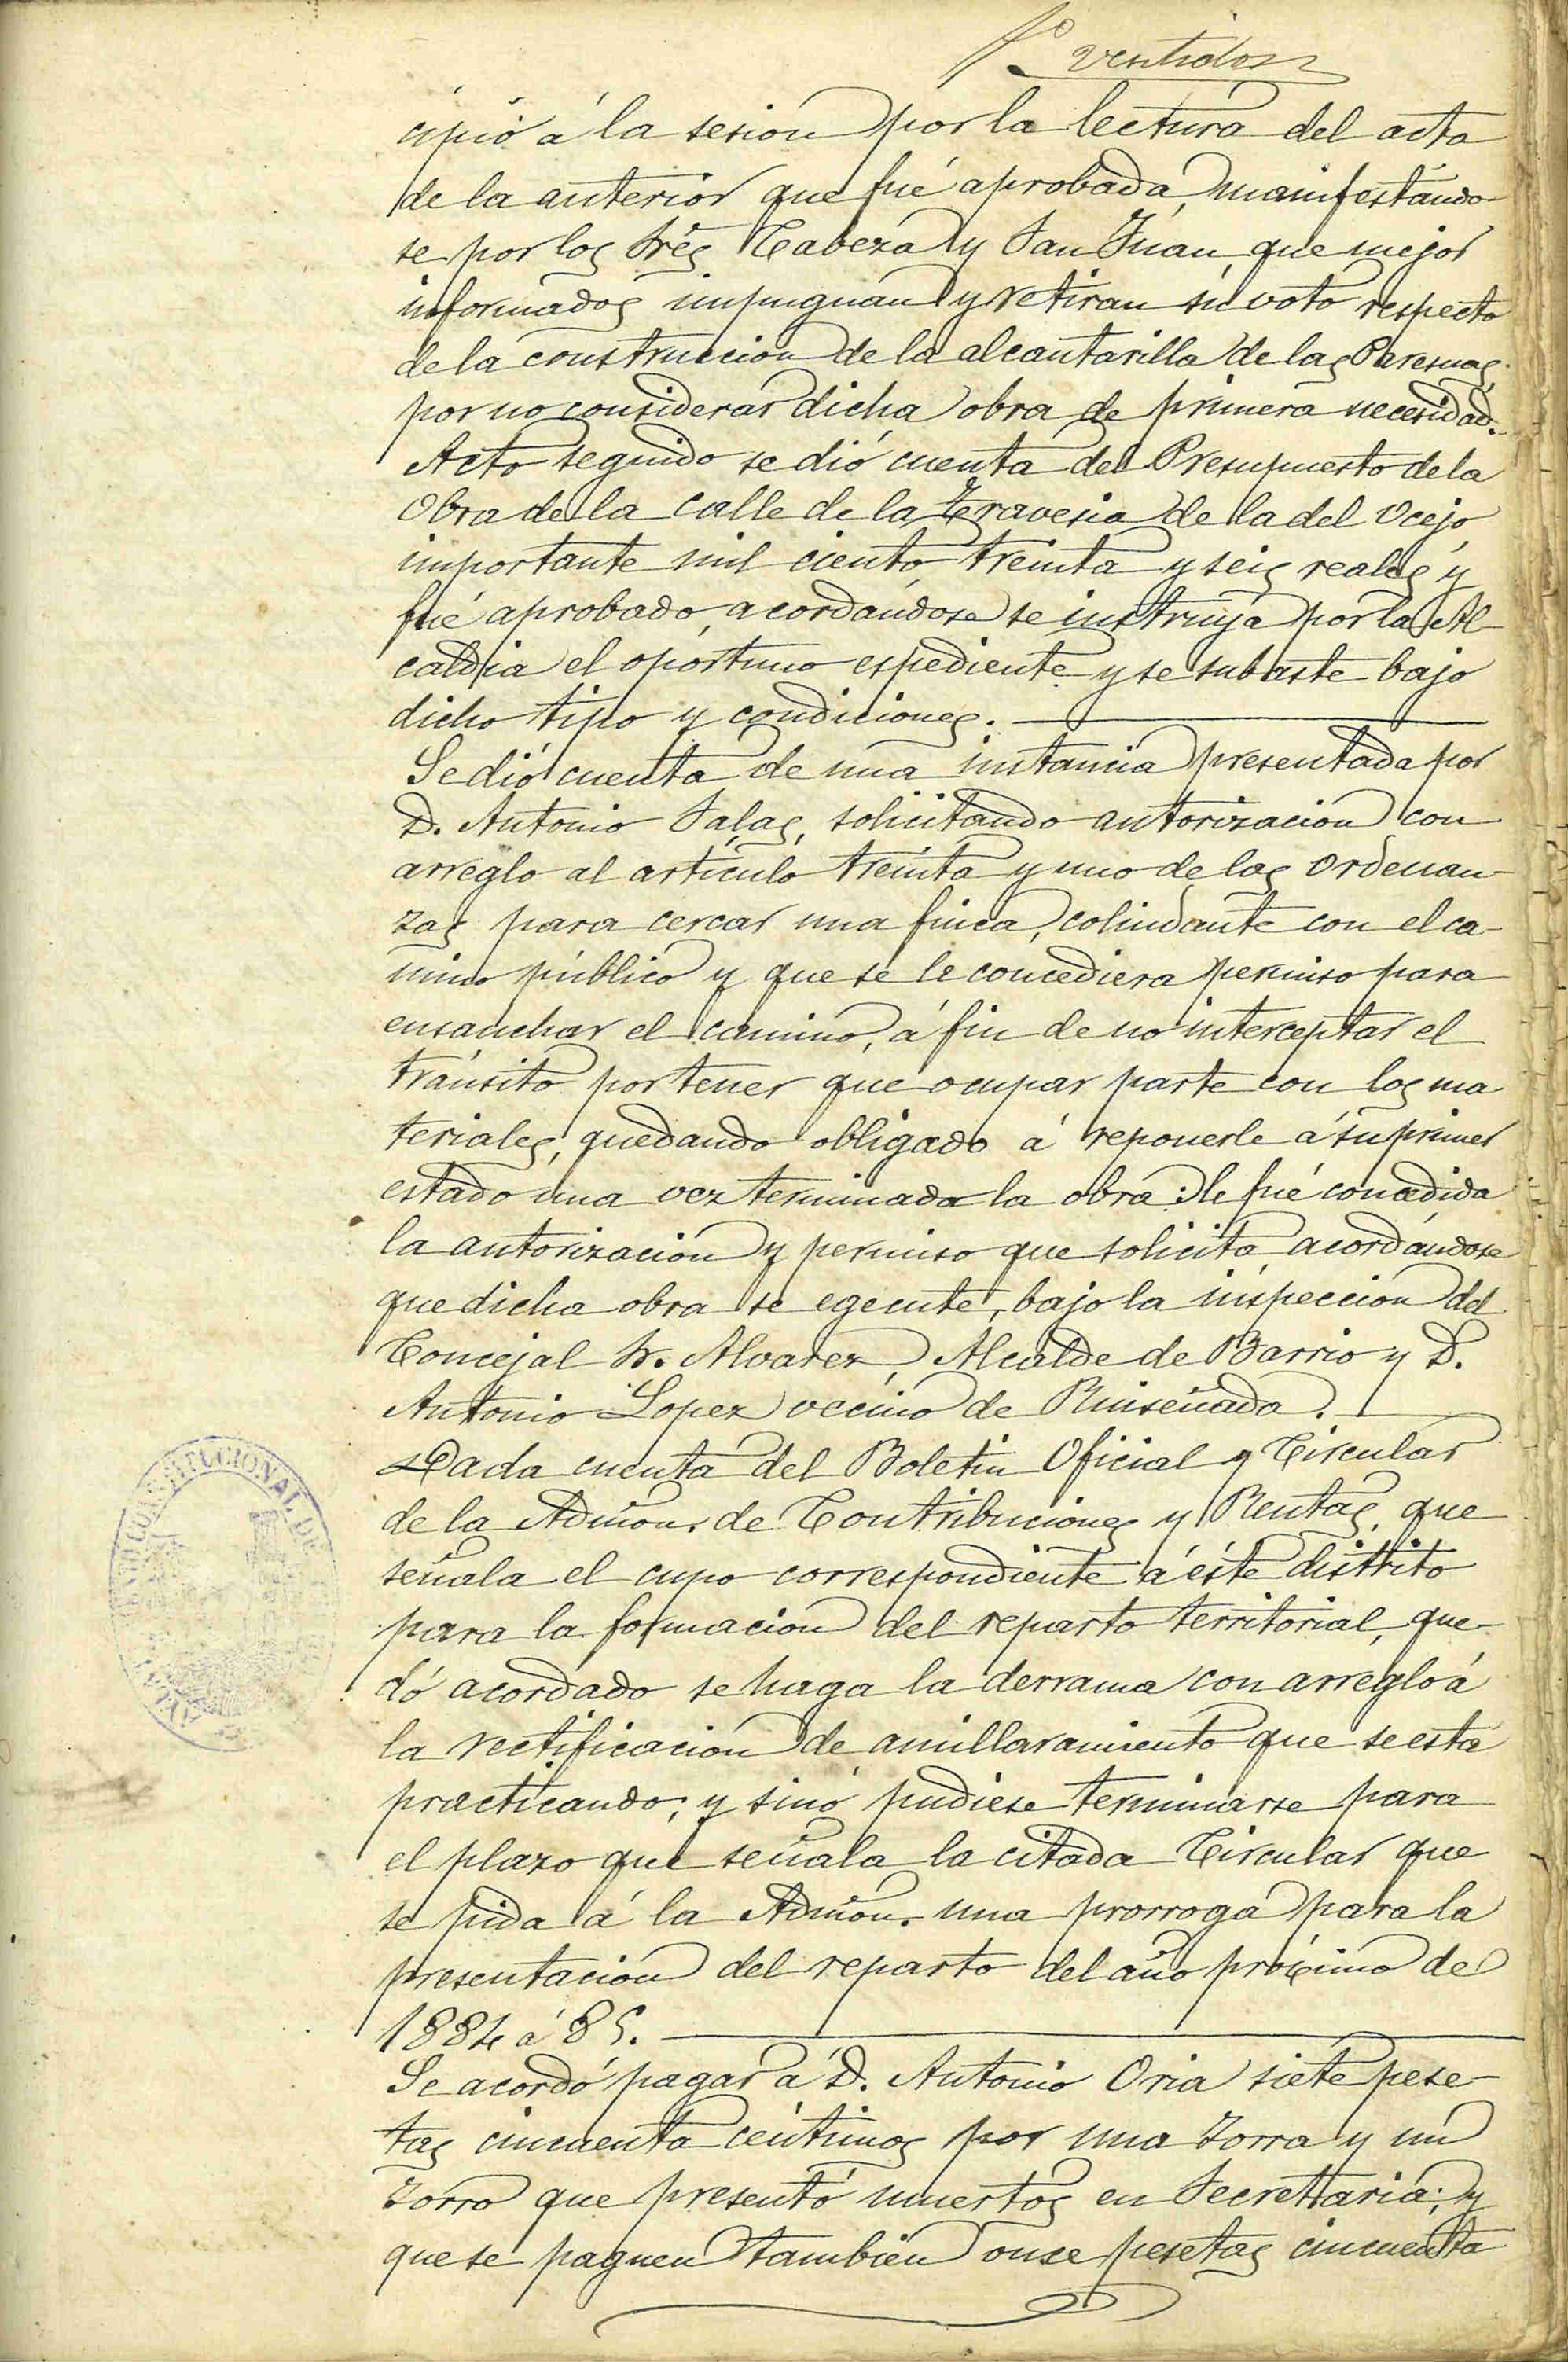 Fº ventidos
cipió á la sesion por la lectura del acta
de la anterior que fué aprobada, manifestándo-
se por los Sres Cabeza y San Juan, que mejor
informados impugnan y retiran su voto respecto
de la construccion de la alcantarilla de las
por no considerar dicha obra de primera necesidad.
Acto seguido se dió cuenta del Presupuesto de la
Obra de la calle de la Travesia de la del Ocejo
importante mil ciento treinta y seis reales y
fué aprobado, acordándose se instruya por la Al-
caldia el oportuno espediente y se subaste bajo
dicho tipo y condiciones.
Se dió cuenta de una instancia presentada por
D. Antonio Salas, solicitando autorizacion con
arreglo al artículo treinta y uno de las Ordenan-
zas para cercar una finca, colindante con el ca-
mino público y que se le concediera permiso para
ensanchar el camino, á fin de no interceptar el
tránsito por tener que ocupar parte con los ma
teriales, quedando obligado á reponerle á su primer
estado una vez terminada la obra: le fué concedida
la autorizacion y permiso que solicita, acordándose
que dicha obra se egecute, bajo la inspeccion del
Concejal Sr. Alvarez, Alcalde de Barrio y D.
Antonio Lopez vecino de Ruiseñada.
Dada cuenta del Boletin Oficial y Circular
de la Admon. de Contribuciones y Rentas, que
señala el cupo correspondiente á éste distrito
para la formacion del reparto territorial, que-
dó acordado se haga la derrama con arreglo á
la rectificacion de amillaramiento que se esta
practicando; y sinó pudiese terminarse para
el plazo que señala la citada Circular que
se pida á la Admon. una prorroga para la
presentacion del reparto del año próximo de
1884 á 85.
Se acordó pagar á D. Antonio Oria siete pese-
tas cincuenta céntimos por una zorra y un
zorro que presentó muertos en Secretaria; y
que se paguen tambien once pesetas cincuenta
CONSTITUCIONAL DE